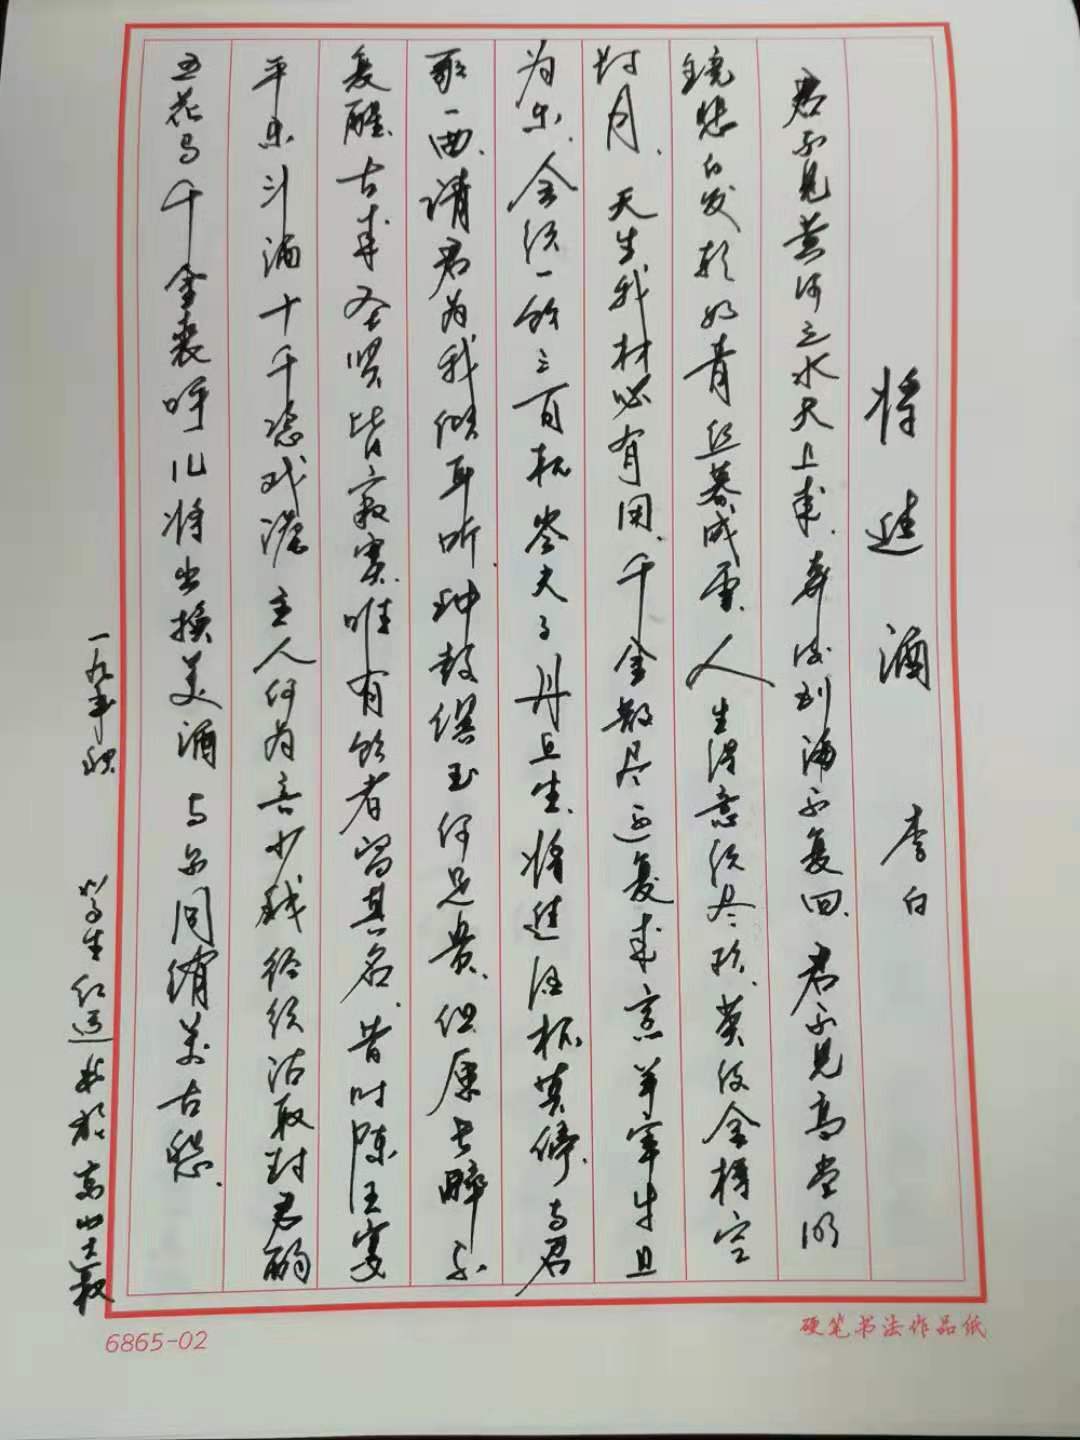 将进酒 李白
君不见黄河之水天上来.奔流到海不复回.君不见高堂明
镜悲白发朝如青丝暮成雪.人生得意须尽欢.莫使金樽空
对月.天生我材必有用.千金散尽还复来烹羊宰牛且
为乐.会须一饮三百杯岑夫子丹丘生.将进酒杯莫停.与君
歌一曲.请君为我倾耳听.钟鼓馔玉何足贵.但愿长醉不
复醒古来圣贤皆寂寞.唯有饮者留其名.昔时陈王宴
平乐斗酒十千恣欢谑主人何为言少钱径须沽取对君酌
五花马千金裘呼儿将出换美酒与尔同销万古愁.
一九年秋
6865-02
硬笔书法作品纸